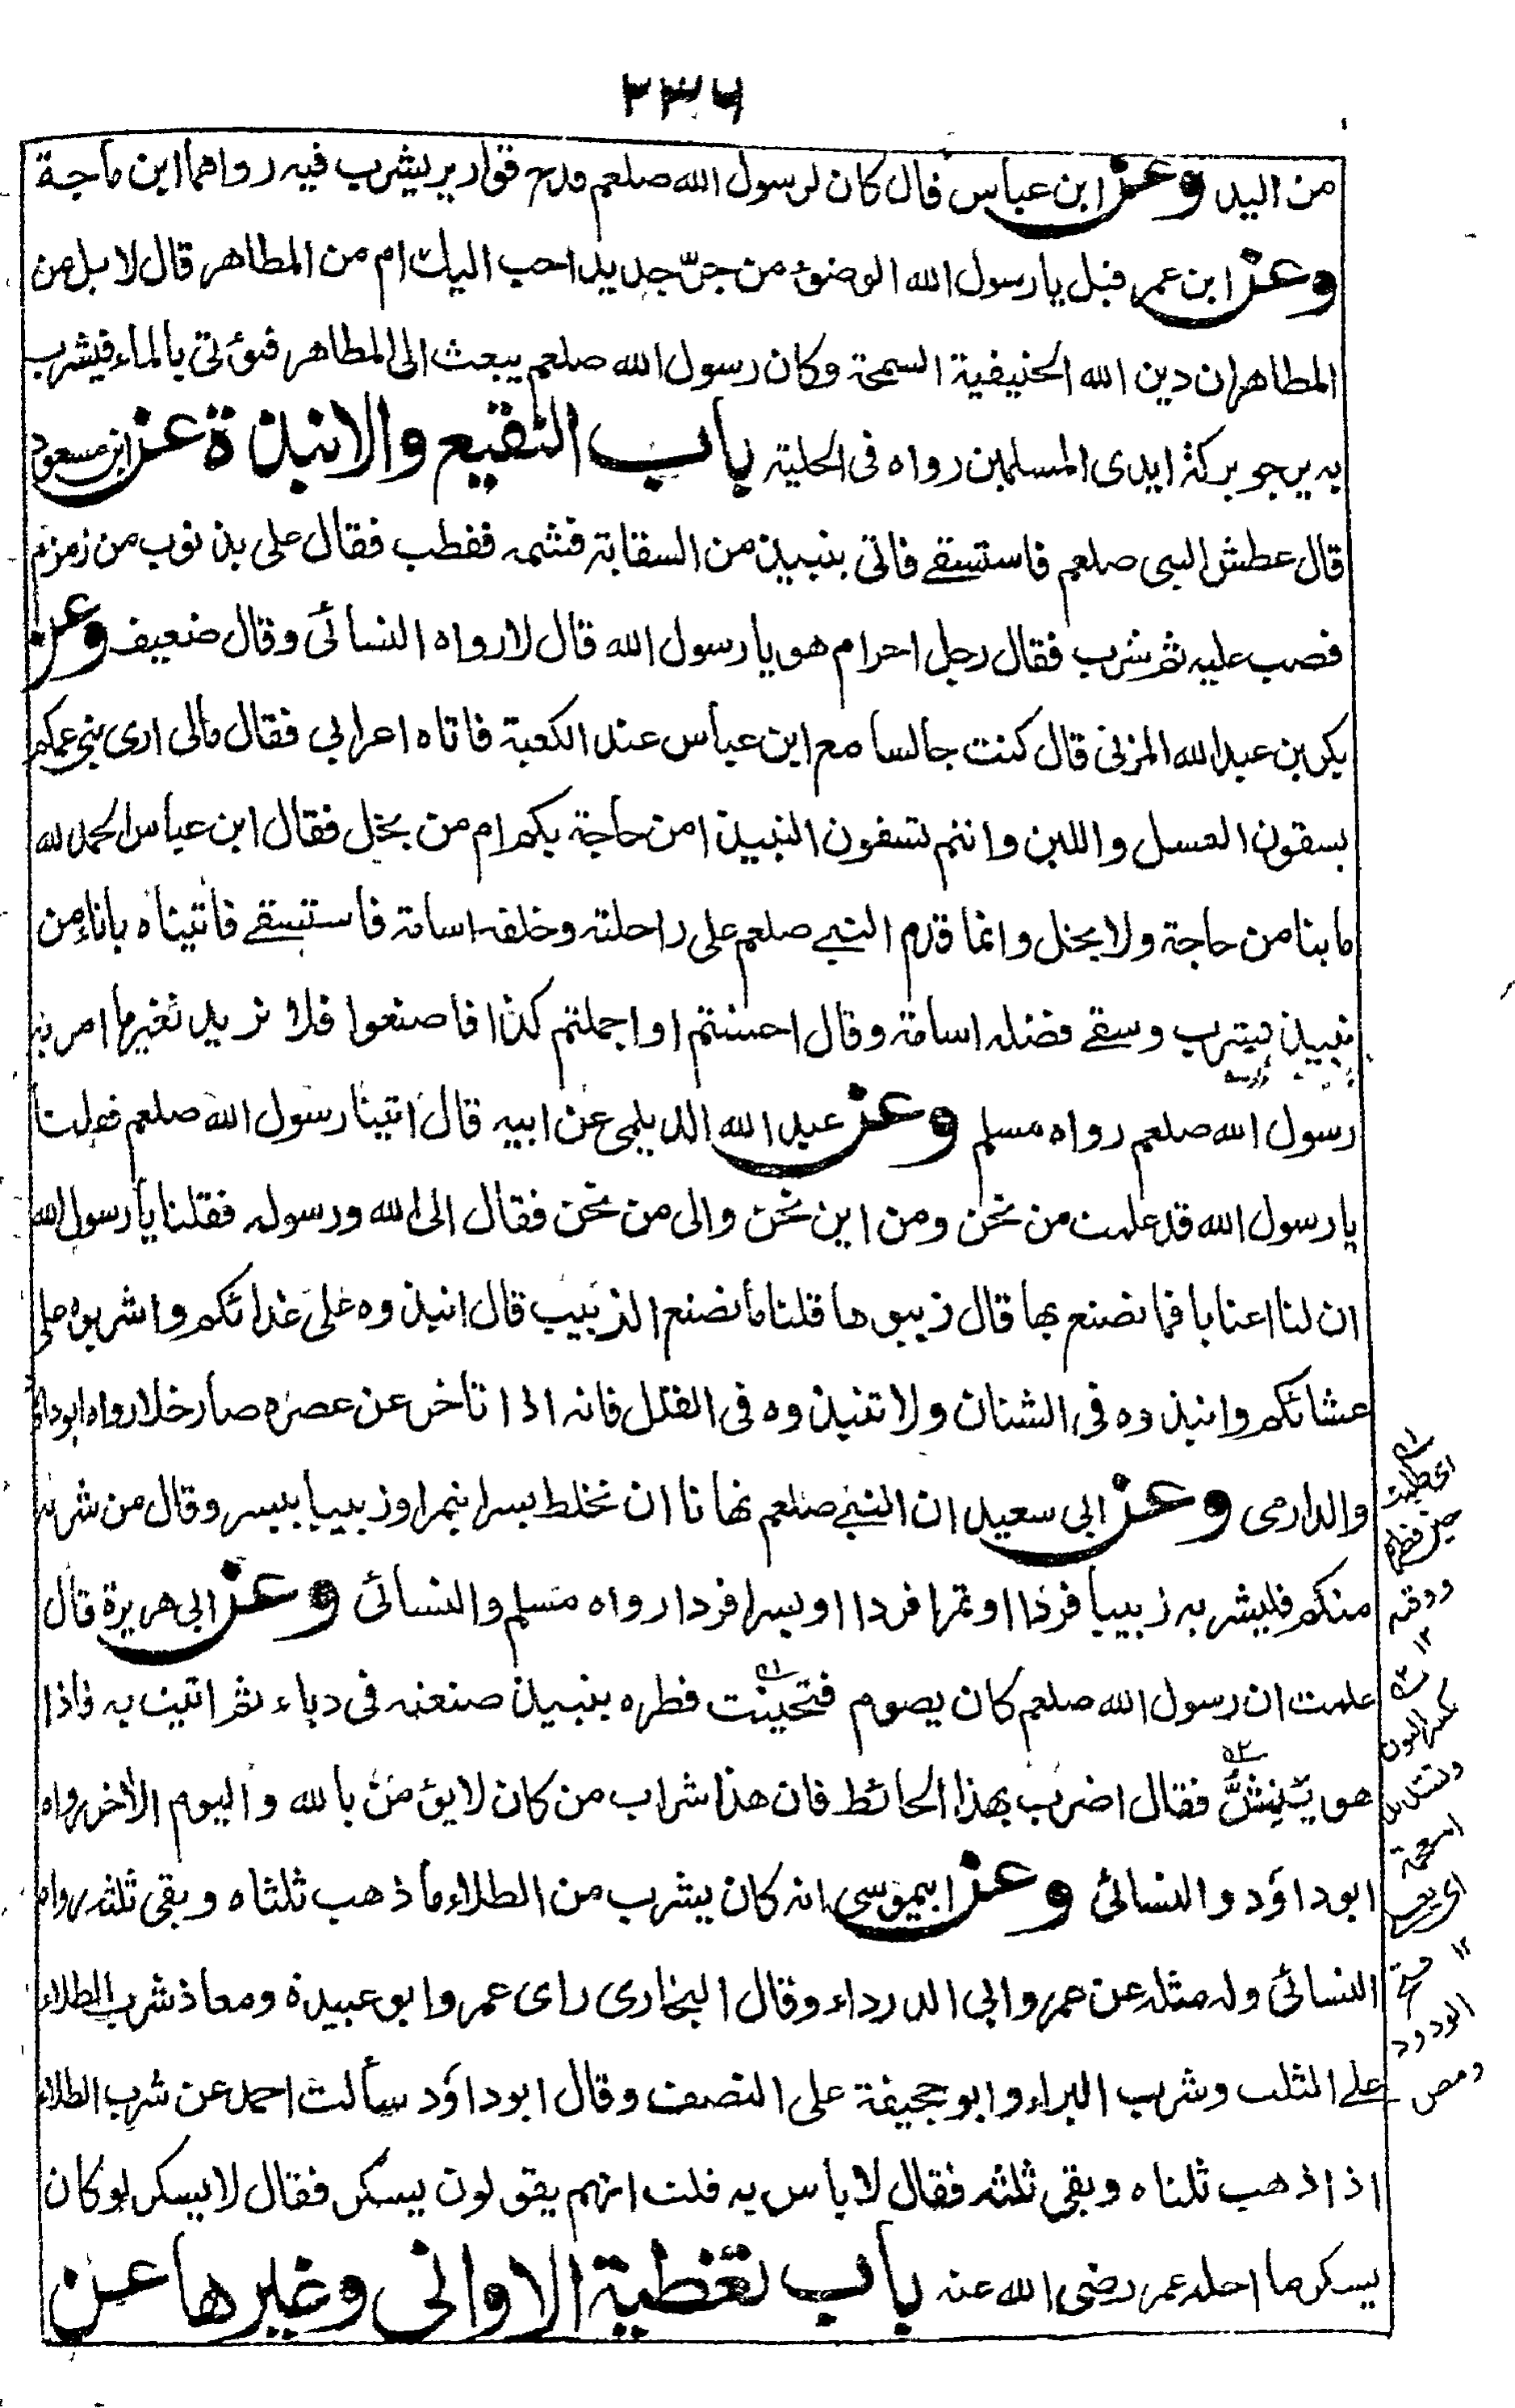 ٢٣٦
من اليد وعن ابن عباس قال كان لرسول الله صلعم قدح قوارير يشرب فيه رواهما ابن ماجة
وعن ابن عمر قيل يا رسول الله الوضوء من جرّ جديد احب اليك ام من المطاهر قال لا بل من
المطاهر ان دين الله الحنيفية السمحة وكان رسول الله صلعم يبعث الى المطاهر فيؤتى بالماء فيشرب
به يرجو بركة ايدى المسلمين رواه فى الحلية باب النقيع والانبذة عن ابن مسعود
قال عطش النبى صلعم فاستسقے فاتى بنبيذ من السقاية فشمه فقطب فقال على بذنوب من زمزم
فصب عليه ثم شرب فقال رجل احرام هو يا رسول الله قال لا رواه النسائى وقال ضعيف وعن
بكر بن عبد الله المزنى قال كنت جالسا مع ابن عباس عند الكعبة فاتاه اعرابى فقال مالى ارى بنى عمكم
يسقون العسل واللبن وانتم تسقون النبيذ امن حاجة بكم ام من بخل فقال ابن عباس الحمد لله
ما بنا من حاجة ولا بخل وانما قدم النبے صلعم على راحلته وخلفه اسامة فاستسقے فاتيناه باناء من
نبيذ فشرب وسقے فضله اسامة وقال احسنتم او اجملتم كذا فاصنعوا فلا نريد تغير ما امر به
رسول الله صلعم رواه مسلم وعن عبد الله الديلمى عن ابيه قال اتينا رسول الله صلعم فقلنا
يا رسول الله قد علمت من نحن ومن اين نحن والى من نحن فقال الى الله ورسوله فقلنا يا رسول الله
ان لنا اعنابا فما نصنع بها قال زببوها قلنا ما نصنع الزبيب قال انبذوه على غدائكم واشربوه على
عشائكم وانبذوه فى الشنان ولا تنبذوه فى القلل فانه اذا تاخر عن عصره صار خلا رواه ابوداؤد
والدارمى وعن ابى سعيد ان النبے صلعم نهانا ان نخلط بسرا بتمر او زبيبا ببسر وقال من شربه
منكم فليشربه زبيبا فردا او تمرا فردا او بسرا فردا رواه مسلم والنسائى وعن ابى هريرة قال
علمت ان رسول الله صلعم كان يصوم فتحينت فطره بنبيذ صنعته فى دباء ثم اتيت به فاذا
هو ينشّ فقال اضرب بهذا الحائط فان هذا شراب من كان لا يؤمن بالله واليوم الاخر رواه
ابوداؤد والنسائى وعن ابيموسى انه كان يشرب من الطلاء ما ذهب ثلثاه وبقى ثلثه رواه
النسائى وله مثله عن عمر وابى الدرداء وقال البخارى راى عمر وابو عبيدة ومعاذ شرب الطلاء
علے الثلث وشرب البراء وابو جحيفة على النصف وقال ابوداؤد سألت احمد عن شرب الطلاء
اذا ذهب ثلثاه وبقى ثلثه فقال لا باس به قلت انهم يقولون يسكر فقال لا يسكر لو كان
يسكر ما احله عمر رضى الله عنه باب تغطية الاوانى وغيرها عن
اى طلبت
حين فطره
ووقته
١٢
بكسر النون